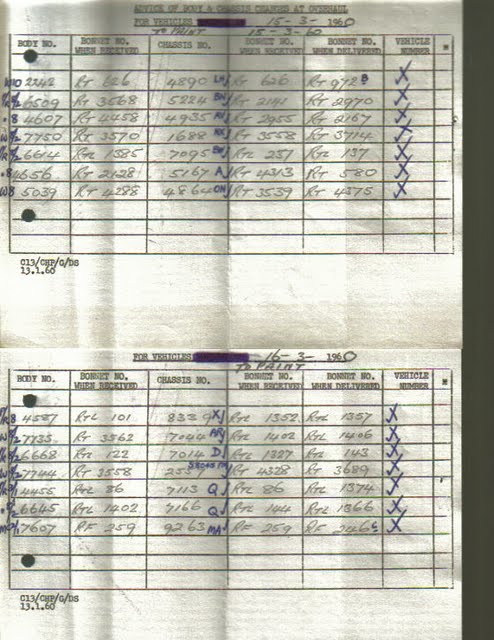 ADVICE OF BODY & CHASSIS CHANGES AT OVERHAUL
FOR VEHICLES 15-3- 1960
TO PAINT 15-3-60
BODY NO. BONNET NO. WHEN RECEIVED CHASSIS NO. BONNET NO. WHEN RECEIVED BONNET NO. WHEN DELIVERED VEHICLE NUMBER
2242 RT 626 4890 RT 626 RT 972 B X
6509 RT 3568 5224 RT 2141 RT 2970 X
4607 RT 4458 4935 RT 2955 RT 2167 X
7750 RT 3570 1688 RT 3558 RT 3714 X
6614 RTL 1385 7095 RTL 257 RTL 137 X
4656 RT 2128 5167 A RT 4313 RT 580 X
W8 5039 RT 4288 4864 ON RT 3539 RT 4375 X
C13/CHP/G/DS
13.1.60
FOR VEHICLES 16-3- 1960
TO PAINT
BODY NO. BONNET NO. WHEN RECEIVED CHASSIS NO. BONNET NO. WHEN RECEIVED BONNET NO. WHEN DELIVERED VEHICLE NUMBER
4587 RTL 101 RTL 1352 RTL 1357 X
7735 RT 3562 7044 RTL 1402 RTL 1406 X
6668 RTL 122 7014 D RTL 1327 RTL 143 X
7744 RT 3558 RT 4328 RT 3689 X
4455 RTL 86 7113 Q RTL 86 RTL 1374 X
6645 RTL 1402 7166 Q RTL 144 RTL 1366 X
7607 RF 259 9263 MA RF 259 RF 246 C X
C13/CHP/G/DS
13.1.60